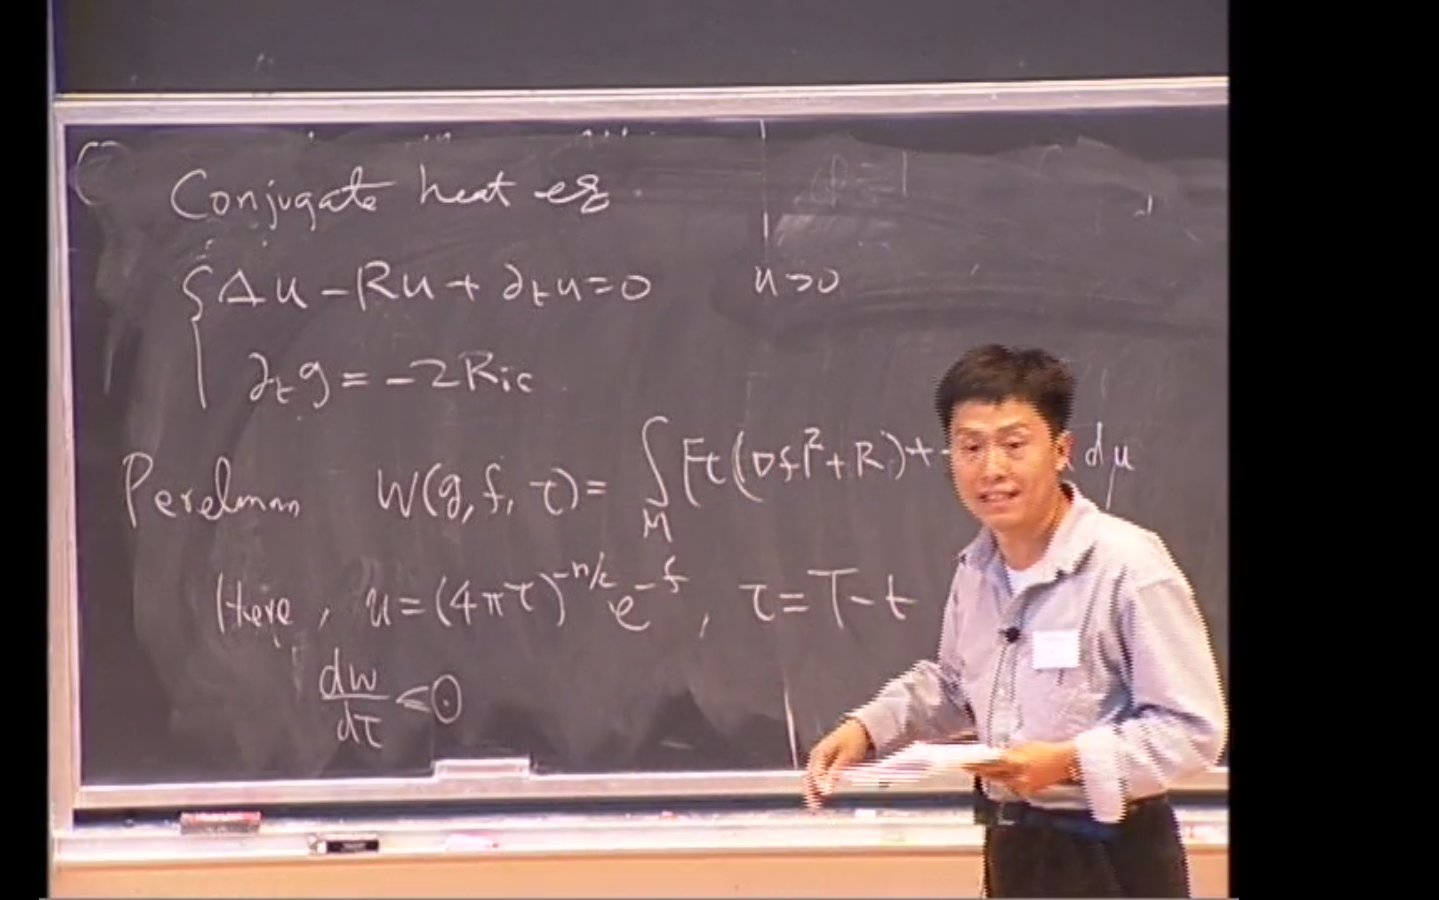 Conjugate heat eq.
{ Δu - Ru + ∂ₜu = 0 u > 0
∂ₜg = -2Ric
Perelman W(g, f, τ) = ∫_M [τ(|∇f|² + R) + dμ
Here, u = (4πτ)^{-n/2} e^{-f}, τ = T - t
dW/dτ ≤ 0